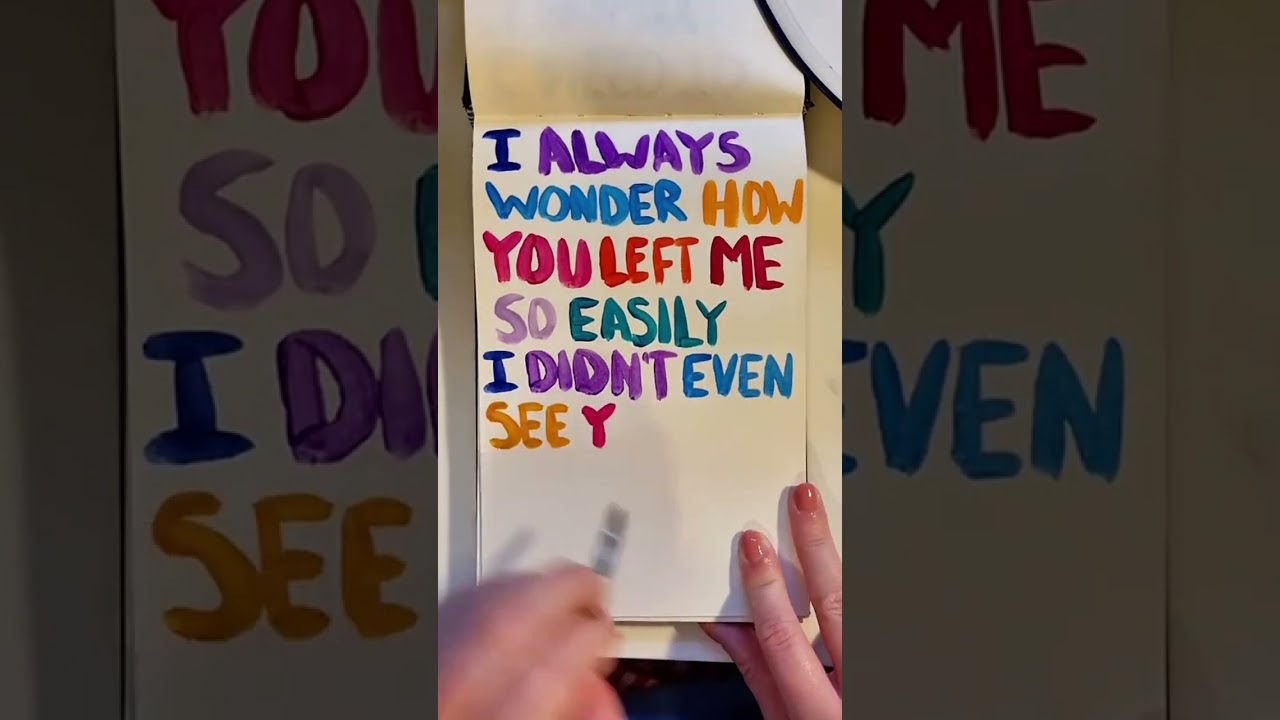 I ALWAYS
WONDER HOW
YOU LEFT ME
SO EASILY
I DIDN'T EVEN
SEE Y